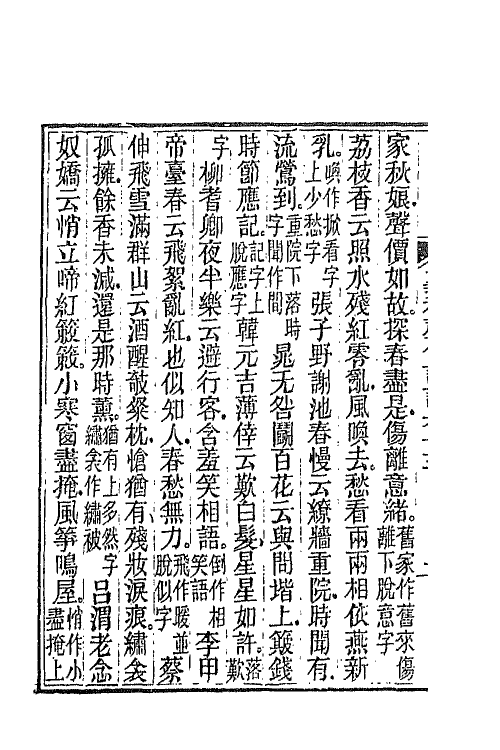 家秋娘聲價如故探春盡是傷離意緒舊家作舊來傷離下脫意字
荔枝香云照水殘紅零亂風喚去愁看兩兩相依燕新
乳喚作掀看字上少愁字 張子野謝池春慢云繚牆重院時聞有
流鶯到重院下落時字聞作間 晁无咎鬬百花云與問堦上簸錢
時節應記記字上脫應字 韓元吉薄倖云歎白髮星星如許落歎
字 柳耆卿夜半樂云避行客含羞笑相語倒作相笑語 李甲
帝臺春云飛絮亂紅也似知人春愁無力飛作暖並脫似字 蔡
伸飛雪滿群山云酒醒敧粲枕愴猶有殘妝淚痕繡衾
孤擁餘香未減還是那時薰猶有上多然字繡衾作繡被 呂渭老念
奴嬌云悄立啼紅簌簌小寒窗盡掩風箏鳴屋悄作小盡掩上